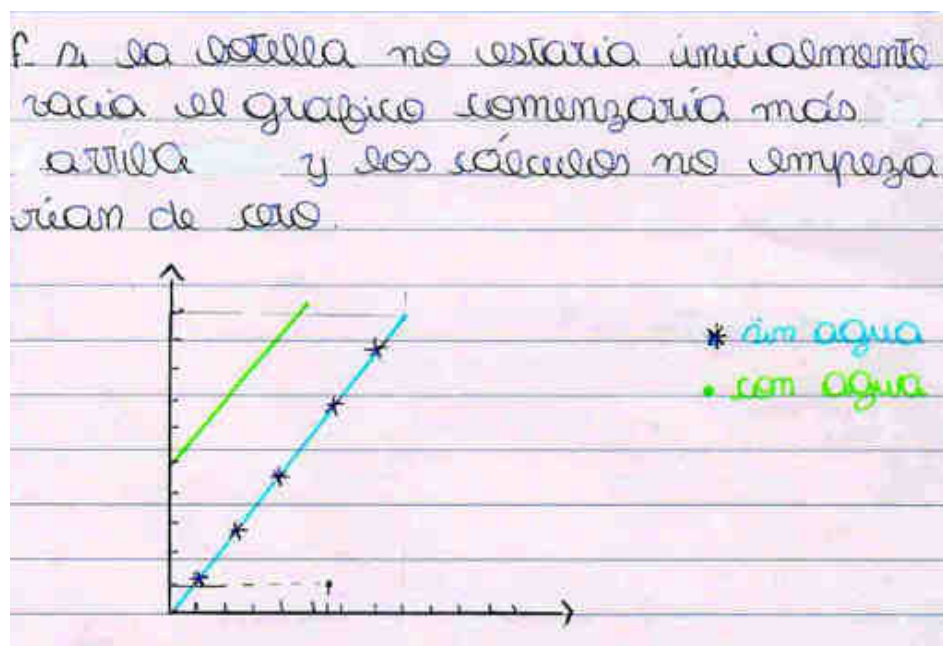 f- si la botella no estaria inicialmente
vacia el gráfico comenzaría más
arriba y los cálculos no empeza
rían de cero.
* sin agua
• con agua